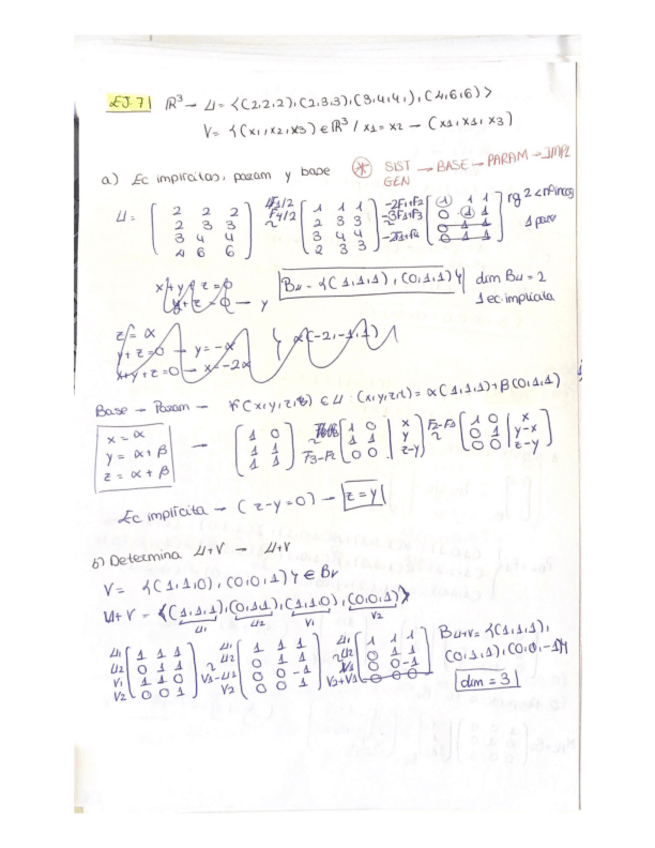 EJ.7 | R³ → U = <(2,2,2), (2,3,3), (3,4,4,), (4,6,6)>
V = {(x1, x2, x3) ∈ R³ / x1 = x2 → (x1, x1, x3)
a) Ec implícitas, param y base ⊛ SIST GEN → BASE → PARAM → IMPL
U = [2 2 2; 2 3 3; 3 4 4; 4 6 6] F1/2 F4/2 ~ [1 1 1; 2 3 3; 3 4 4; 2 3 3] -2F1+F2 -3F1+F3 ~ -2F1+F4 [1 1 1; 0 1 1; 0 1 1; 0 1 1] rg 2 < nº incog
1 para
x+y+z=0
y+z=0 → y
Bu = {(1,1,1), (0,1,1)} dim Bu = 2
1 ec. implícita
z = α
y+z=0 → y=-α
x+y+z=0 → x=-2α
Base → Param → (x,y,z,t) ∈ U : (x,y,z,t) = α(1,1,1)+β(0,1,1)
x = α
y = α + β
z = α + β
→ [1 0; 1 1; 1 1] ~ F3-F2 [1 0 | x; 1 1 | y; 0 0 | z-y] F2-F1 ~ [1 0 | x; 0 1 | y-x; 0 0 | z-y]
Ec implícita → (z-y=0) → z=y
b) Determina U+V → U+V
V = {(1,1,0), (0,0,1)} ∈ Bv
U+V = <(1,1,1), (0,1,1), (1,1,0), (0,0,1)>
U1 U2 V1 V2
U1 U2 V1 V2 [1 1 1; 0 1 1; 1 1 0; 0 0 1] ~ V1-U1 [1 1 1; 0 1 1; 0 0 -1; 0 0 1] ~ V2+V1 [1 1 1; 0 1 1; 0 0 -1; 0 0 0]
Bu+v = {(1,1,1), (0,1,1), (0,0,-1)}
dim = 3